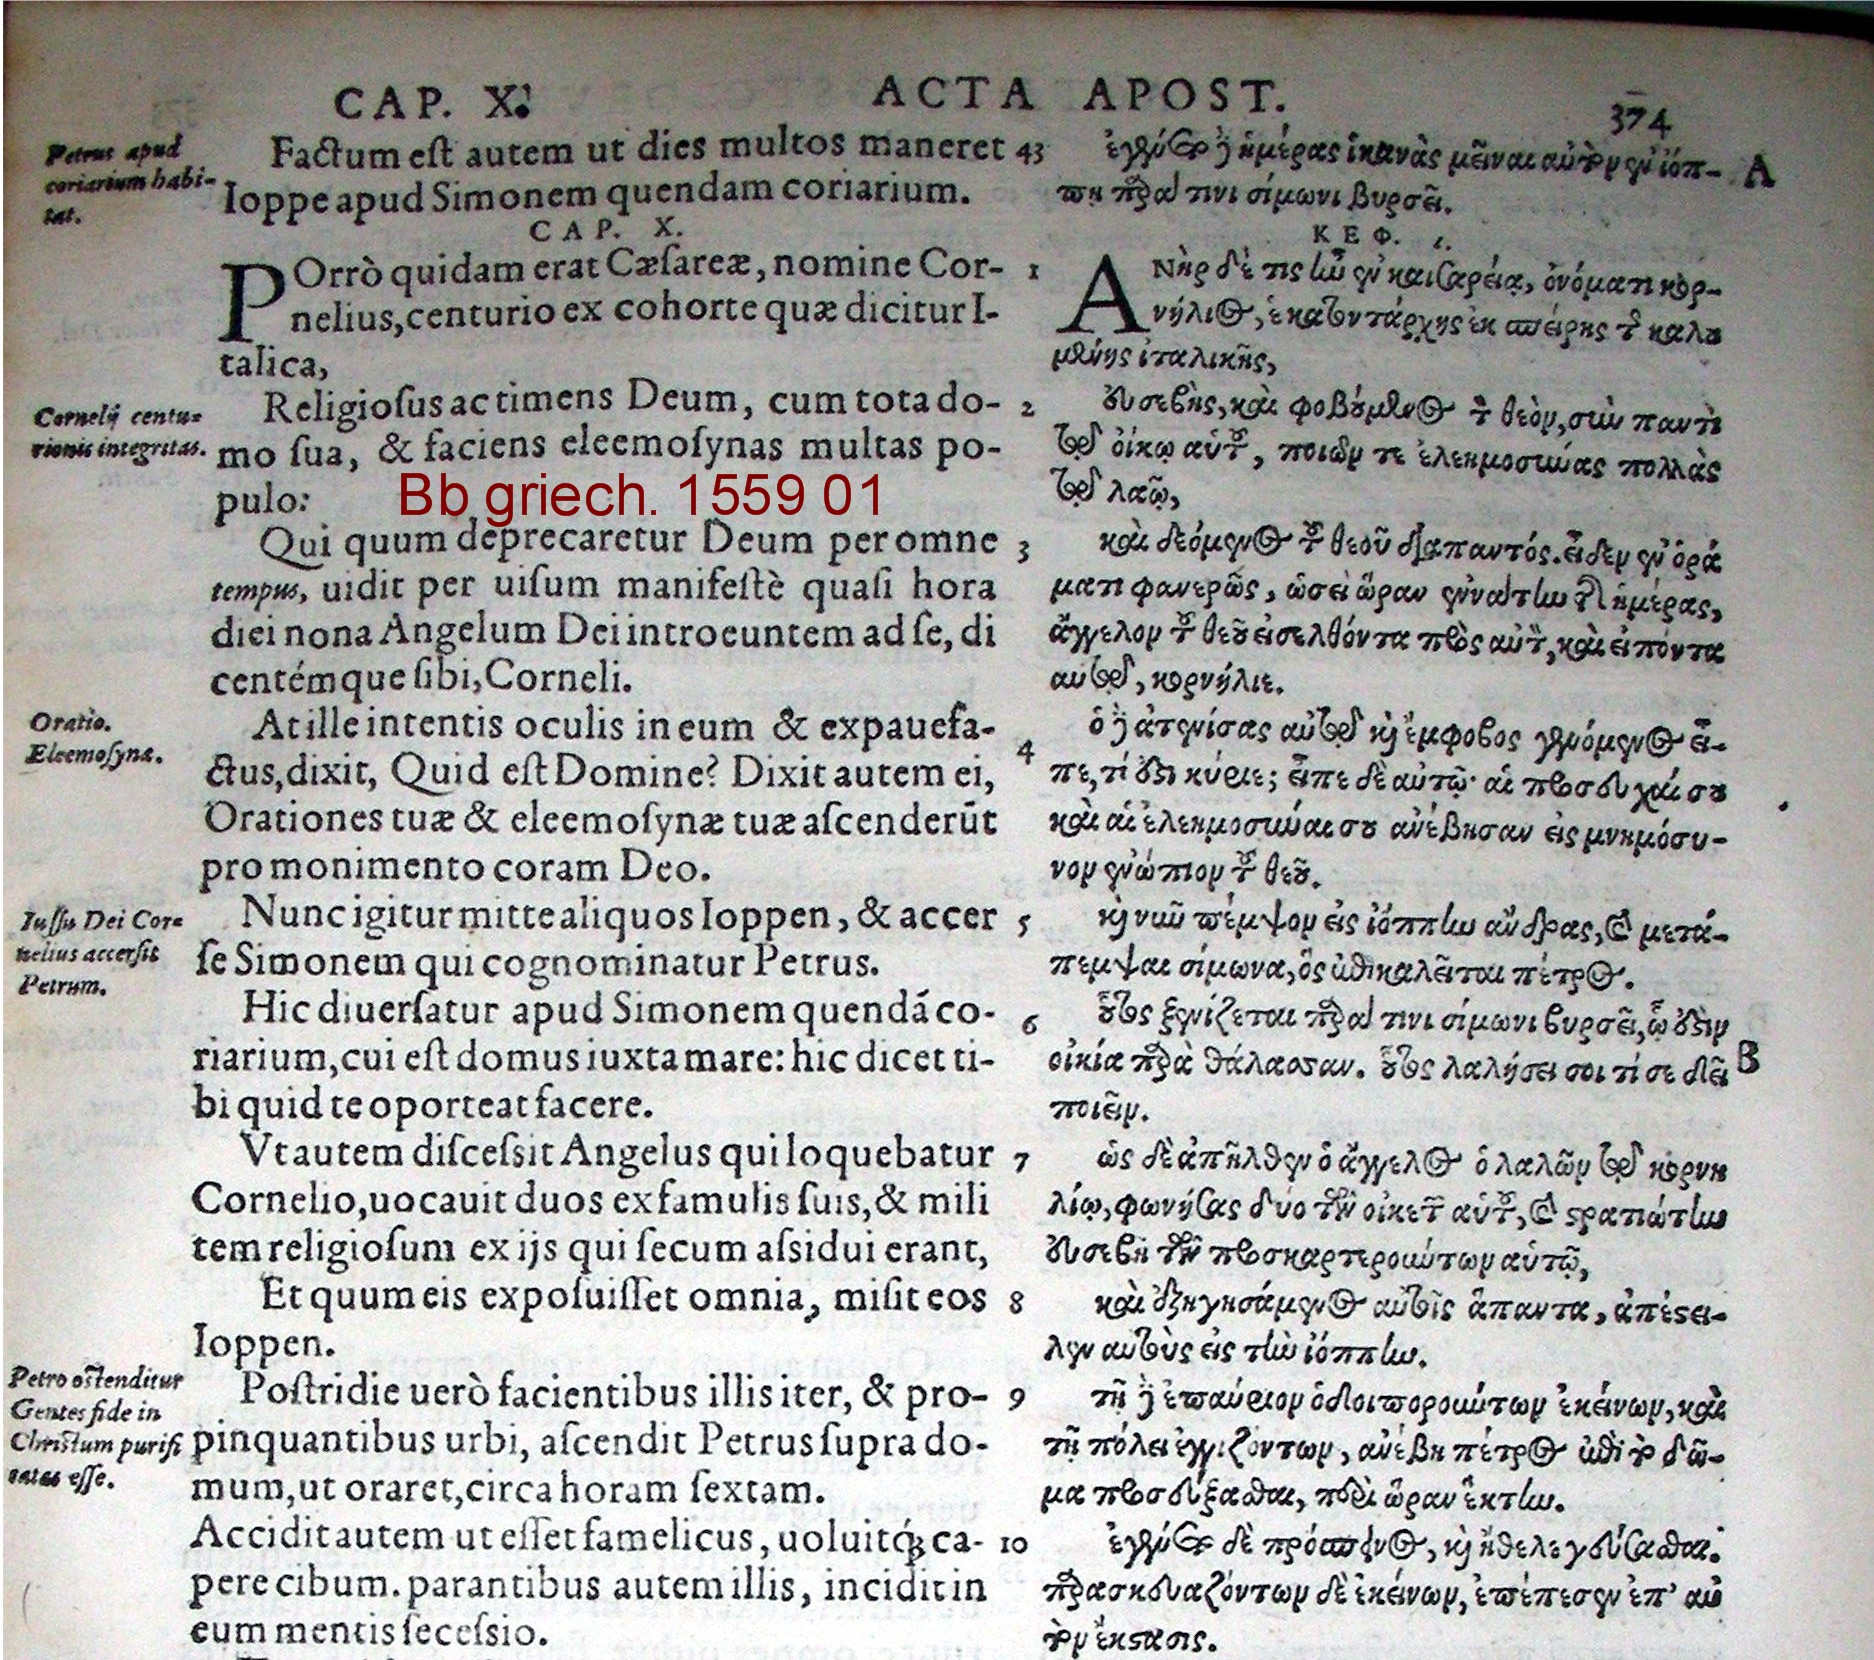 CAP. X.
ACTA APOST.
374
Petrus apud
coriarium habi-
tat.
Cornelij centu-
rionis integritas.
Oratio.
Eleemosynæ.
Iussu Dei Cor-
nelius accersit
Petrum.
Petro ostenditur
Gentes fide in
Christum purifi
catas esse.
Factum eſt autem ut dies multos maneret
Ioppe apud Simonem quendam coriarium.
CAP. X.
POrrò quidam erat Cæſareæ, nomine Cor-
nelius, centurio ex cohorte quæ dicitur I-
talica,
Religioſus ac timens Deum, cum tota do-
mo ſua, & faciens eleemoſynas multas po-
pulo:
Bb griech. 1559 01
Qui quum deprecaretur Deum per omne
tempus, uidit per uiſum manifeſtè quaſi hora
diei nona Angelum Dei introeuntem ad ſe, di
centémque ſibi, Corneli.
At ille intentis oculis in eum & expauefa-
ctus, dixit, Quid eſt Domine? Dixit autem ei,
Orationes tuæ & eleemoſynæ tuæ aſcenderūt
pro monimento coram Deo.
Nunc igitur mitte aliquos Ioppen, & accer
ſe Simonem qui cognominatur Petrus.
Hic diuerſatur apud Simonem quendā co-
riarium, cui eſt domus iuxta mare: hic dicet ti-
bi quid te oporteat facere.
Vt autem diſceſsit Angelus qui loquebatur
Cornelio, uocauit duos ex famulis ſuis, & mili
tem religioſum ex ijs qui ſecum aſsidui erant,
Et quum eis expoſuiſſet omnia, miſit eos
Ioppen.
Poſtridie uerò facientibus illis iter, & pro-
pinquantibus urbi, aſcendit Petrus ſupra do-
mum, ut oraret, circa horam ſextam.
Accidit autem ut eſſet famelicus, uoluitq́ꝫ ca-
pere cibum. parantibus autem illis, incidit in
eum mentis ſeceſsio.
43
1
2
3
4
5
6
7
8
9
10
ἐγένετο δὲ ἡμέρας ἱκανὰς μεῖναι αὐτὸν ἐν ἰόπ-
πῃ παρά τινι σίμωνι βυρσεῖ.
ΚΕΦ. ι.
ΑΝὴρ δέ τις ἦν ἐν καισαρείᾳ, ὀνόματι κορ-
νήλιος, ἑκατοντάρχης ἐκ σπείρης τῆς καλου
μένης ἰταλικῆς,
εὐσεβὴς, καὶ φοβούμενος τὸν θεὸν, σὺν παντὶ
τῷ οἴκῳ αὐτοῦ, ποιῶν τε ἐλεημοσύνας πολλὰς
τῷ λαῷ,
καὶ δεόμενος τοῦ θεοῦ διαπαντός. εἶδεν ἐν ὁρά
ματι φανερῶς, ὡσεὶ ὥραν ἐννάτην τῆς ἡμέρας,
ἄγγελον τοῦ θεοῦ εἰσελθόντα πρὸς αὐτὸν, καὶ εἰπόντα
αὐτῷ, κορνήλιε.
ὁ δὲ ἀτενίσας αὐτῷ καὶ ἔμφοβος γενόμενος εἶ-
πε, τί ἐστι κύριε; εἶπε δὲ αὐτῷ· αἱ προσευχαί σου
καὶ αἱ ἐλεημοσύναι σου ἀνέβησαν εἰς μνημόσυ-
νον ἐνώπιον τοῦ θεοῦ.
καὶ νῦν πέμψον εἰς ἰόππην ἄνδρας, καὶ μετά-
πεμψαι σίμωνα, ὃς ἐπικαλεῖται πέτρος.
οὗτος ξενίζεται παρά τινι σίμωνι βυρσεῖ, ᾧ ἐστιν
οἰκία παρὰ θάλασσαν. οὗτος λαλήσει σοι τί σε δεῖ
ποιεῖν.
ὡς δὲ ἀπῆλθεν ὁ ἄγγελος ὁ λαλῶν τῷ κορνη
λίῳ, φωνήσας δύο τῶν οἰκετῶν αὐτοῦ, καὶ στρατιώτην
εὐσεβῆ τῶν προσκαρτερούντων αὐτῷ,
καὶ ἐξηγησάμενος αὐτοῖς ἅπαντα, ἀπέστει-
λεν αὐτοὺς εἰς τὴν ἰόππην.
τῇ δὲ ἐπαύριον ὁδοιπορούντων ἐκείνων, καὶ
τῇ πόλει ἐγγιζόντων, ἀνέβη πέτρος ἐπὶ τὸ δῶ-
μα προσεύξασθαι, περὶ ὥραν ἕκτην.
ἐγένετο δὲ πρόσπεινος, καὶ ἤθελε γεύσασθαι.
παρασκευαζόντων δὲ ἐκείνων, ἐπέπεσεν ἐπ' αὐ
τὸν ἔκστασις.
A
B